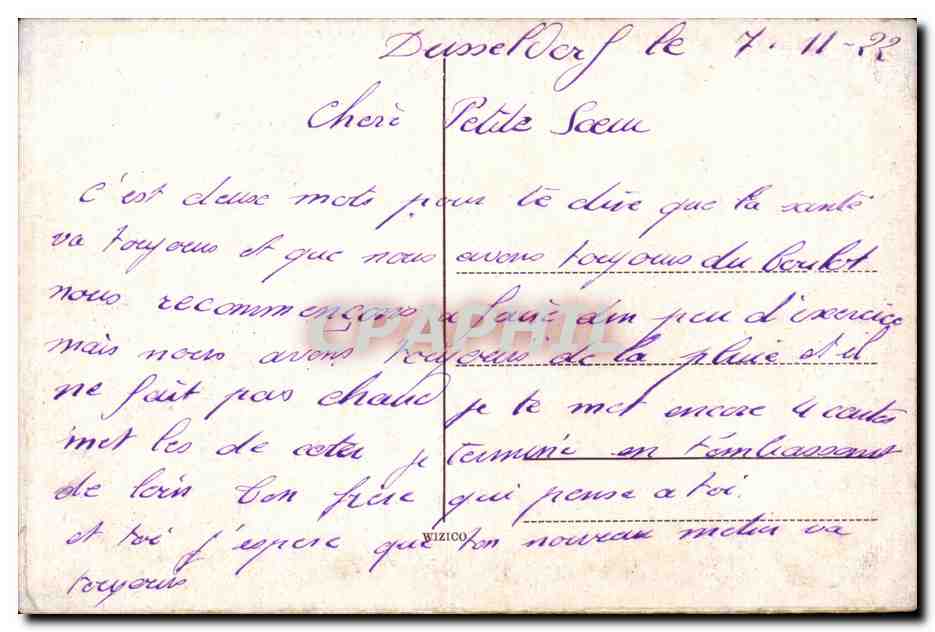 Dusseldorf le 7-11-22
Cherè Petite Sœur
C'est deuse mots pour te dire que la santé
va toujours et que nous avons toujours du boulot
nous recommençons a faire dun peu d'exercice
mais nous avons toujours de la pluie et il
ne fait pas chaud je te met encore 4 cartes
met les de coter je terminè en t'embrassant
de loin ton frere qui pense a toi.
et toi j'espere que ton nouveau metier va
toujours
WIZICO
CPAPHIL